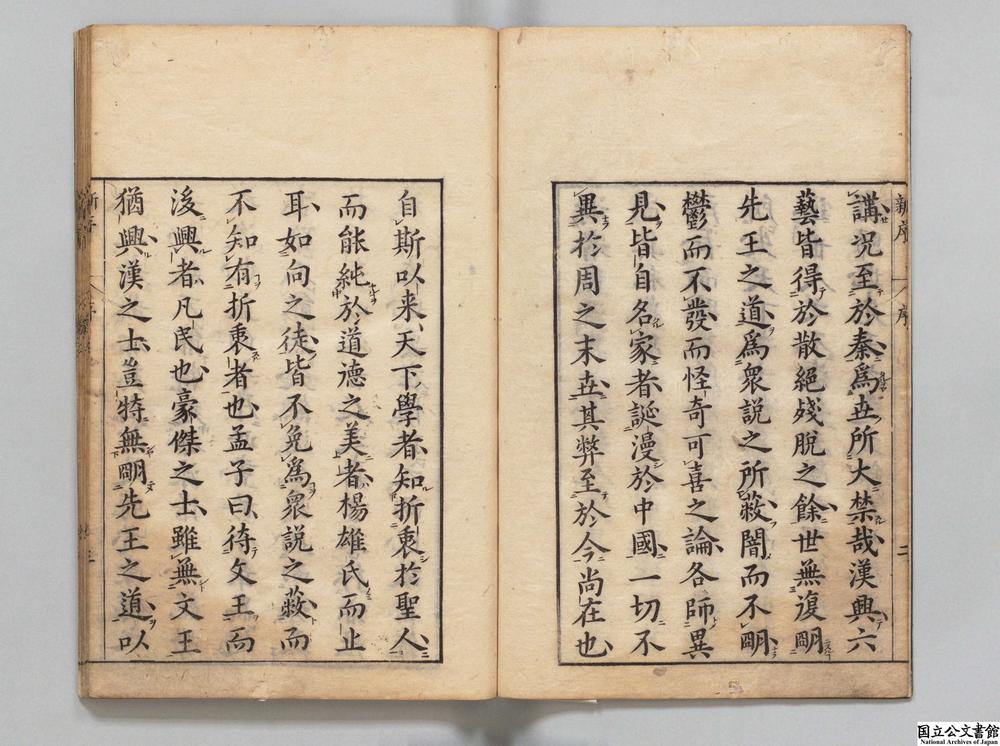 新序 序 二
講况至於秦為世所大禁哉漢興六
藝皆得於散絕殘脫之餘世無復明
先王之道為衆說之所蔽闇而不明
鬱而不發而怪奇可喜之論各師異
見皆自名家者誕漫於中國一切不
異於周之末世其弊至於今尚在也
自斯以来天下學者知折衷於聖人
而能純於道德之美者楊雄氏而止
耳如向之徒皆不免為衆說之蔽而
不知有折衷者也孟子曰待文王而
後興者凡民也豪傑之士雖無文王
猶興漢之士豈特無明先王之道以
国立公文書館
National Archives of Japan